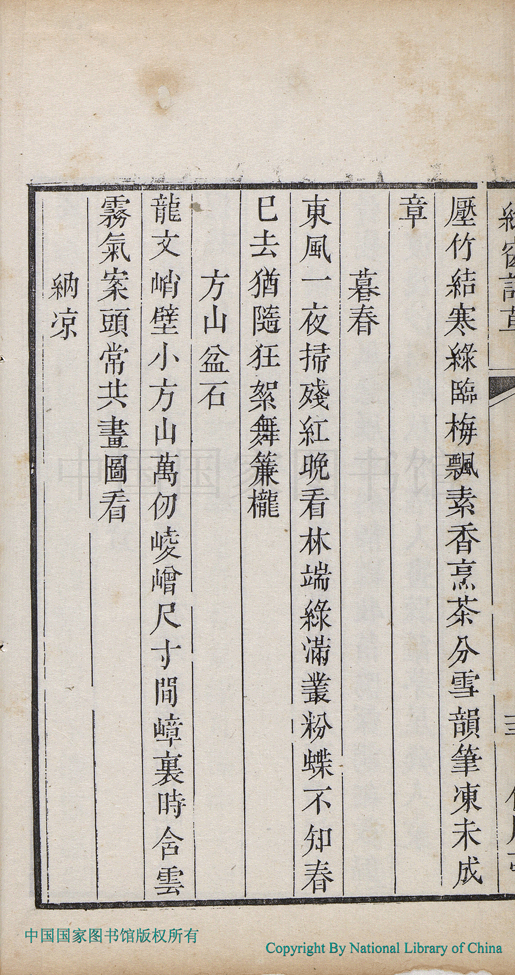 壓竹結寒綠臨梅飄素香烹茶分雪韻筆凍未成
章
暮春
東風一夜掃殘紅晚看林端綠滿叢粉蝶不知春
巳去猶隨狂絮舞簾櫳
方山盆石
龍文峭壁小方山萬仞崚嶒尺寸間嶂裏時含雲
霧氣案頭常共畫圖看
納凉
中国国家图书馆
中国国家图书馆版权所有
Copyright By National Library of China